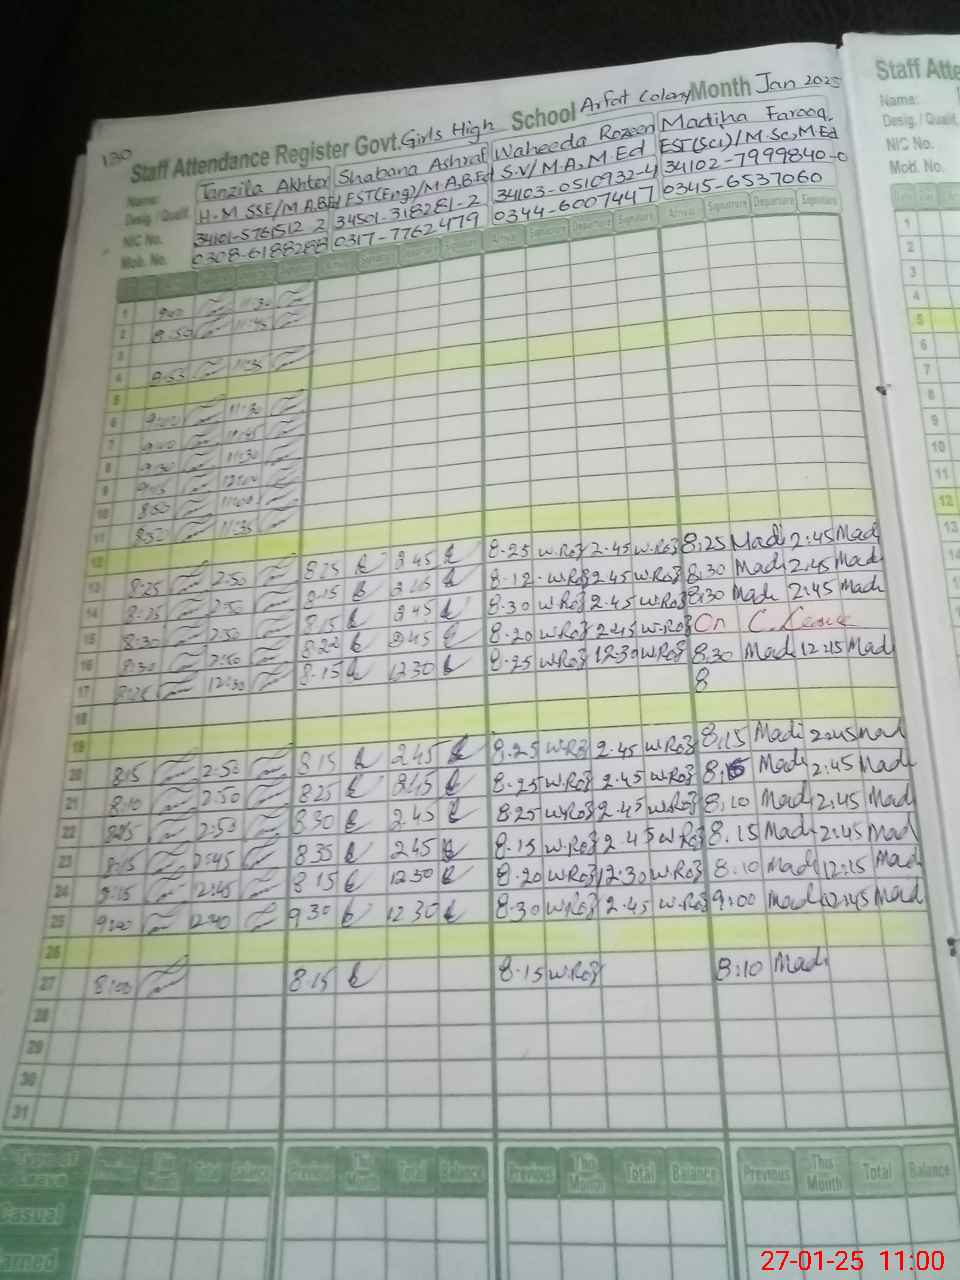 130
Staff Attendance Register Govt. Girls High School Arfat Colony Month Jan 2025
Name: Tanzila Akhter Shabana Ashraf Waheeda Rozeen Madiha Farooq.
Desig. / Qualif. H-M SSE/M.A, B.Ed EST(Eng)/M.A, B.Ed S.V/M.A, M.Ed EST(Sci)/M.Sc, M.Ed
NIC No. 34101-5761512 2 34501-318281-2 34103-0510932-4 34102-7999840-0
Mob. No. 0308-6188288 0317-7762479 0344-6007447 0345-6537060
Arrival Signature Departure Signature Arrival Signature Departure Signature
1 9:00 11:30
2 8:50 11:45
3
4 8:53 11:35
5
6 9:00 11:30
7 9:00
8 9:30 11:30
9 9:15 12:00
10 8:50 11:00
11 8:50 11:35
12
13 8:25 2:50 8.25 2.45 8.25 W.Roz 2.45 W.Roz 8:25 Madi 2:45 Madi
14 2:50 8.15 8.12 W.Roz 2.45 W.Roz 8:30 Madi 2:45 Madi
15 8:30 2:50 8.15 2.45 8.30 W.Roz 2.45 W.Roz 8:30 Madi 2:45 Madi
16 8:30 2:50 8.20 2.45 8.20 W.Roz 2.45 W.Roz On C. Leave
17 12:30 8.15 12.30 8.25 W.Roz 12.30 W.Roz 8:30 Madi 12:15 Madi
8
18
19
20 8:15 2:50 8.15 2.45 8.25 W.Roz 2.45 W.Roz 8:15 Madi 2:45 Madi
21 8:10 2:50 8.25 2.45 8.25 W.Roz 2.45 W.Roz Madi 2:45 Madi
22 2:50 8.30 2.45 8.25 W.Roz 2.45 W.Roz 8:10 Madi 2:45 Madi
23 8:15 2:45 8.35 2.45 8.15 W.Roz 2.45 W.Roz 8:15 Madi 2:45 Madi
24 8:15 12:45 8.15 12.30 8.20 W.Roz 12.30 W.Roz 8:10 Madi 12:15 Madi
25 9:00 12:40 9.30 12.30 8.30 W.Roz 2.45 W.Roz 9:00 Madi 12:45 Madi
26
27 8:00 8.15 8.15 W.Roz 8:10 Madi
28
29
30
31
Previous This Month Total Balance Previous This Month Total Balance Previous This Month Total Balance Previous This Month Total Balance
Casual
Staff Atte
Name:
Desig. / Qualif.
NIC No.
Mob. No.
1
2
3
4
5
6
7
8
9
10
11
12
13
27-01-25 11:00